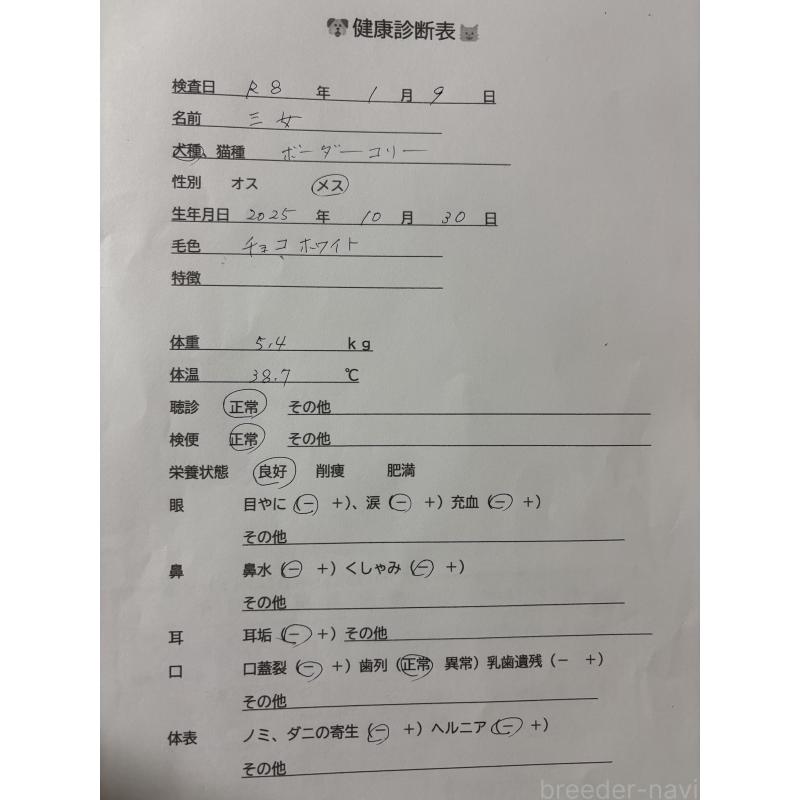 🐶健康診断表🐱
検査日 R8 年 1 月 9 日
名前 三女
犬種、猫種 ボーダーコリー
性別 オス メス
生年月日 2025 年 10 月 30 日
毛色 チョコホワイト
特徴
体重 5.4 kg
体温 38.7 ℃
聴診 正常 その他
検便 正常 その他
栄養状態 良好 削痩 肥満
眼 目やに(− +)、涙(− +)充血(− +)
その他
鼻 鼻水(− +)くしゃみ(− +)
その他
耳 耳垢(− +)その他
口 口蓋裂(− +)歯列(正常 異常)乳歯遺残(− +)
その他
体表 ノミ、ダニの寄生(− +)ヘルニア(− +)
その他
breeder-navi